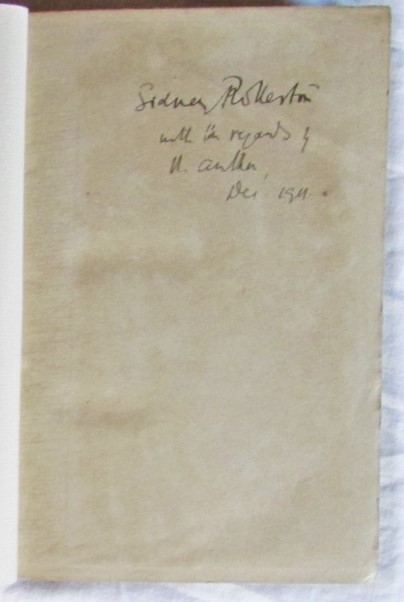 Sidney Rolleston
with the regards of
the author,
Dec 1911.